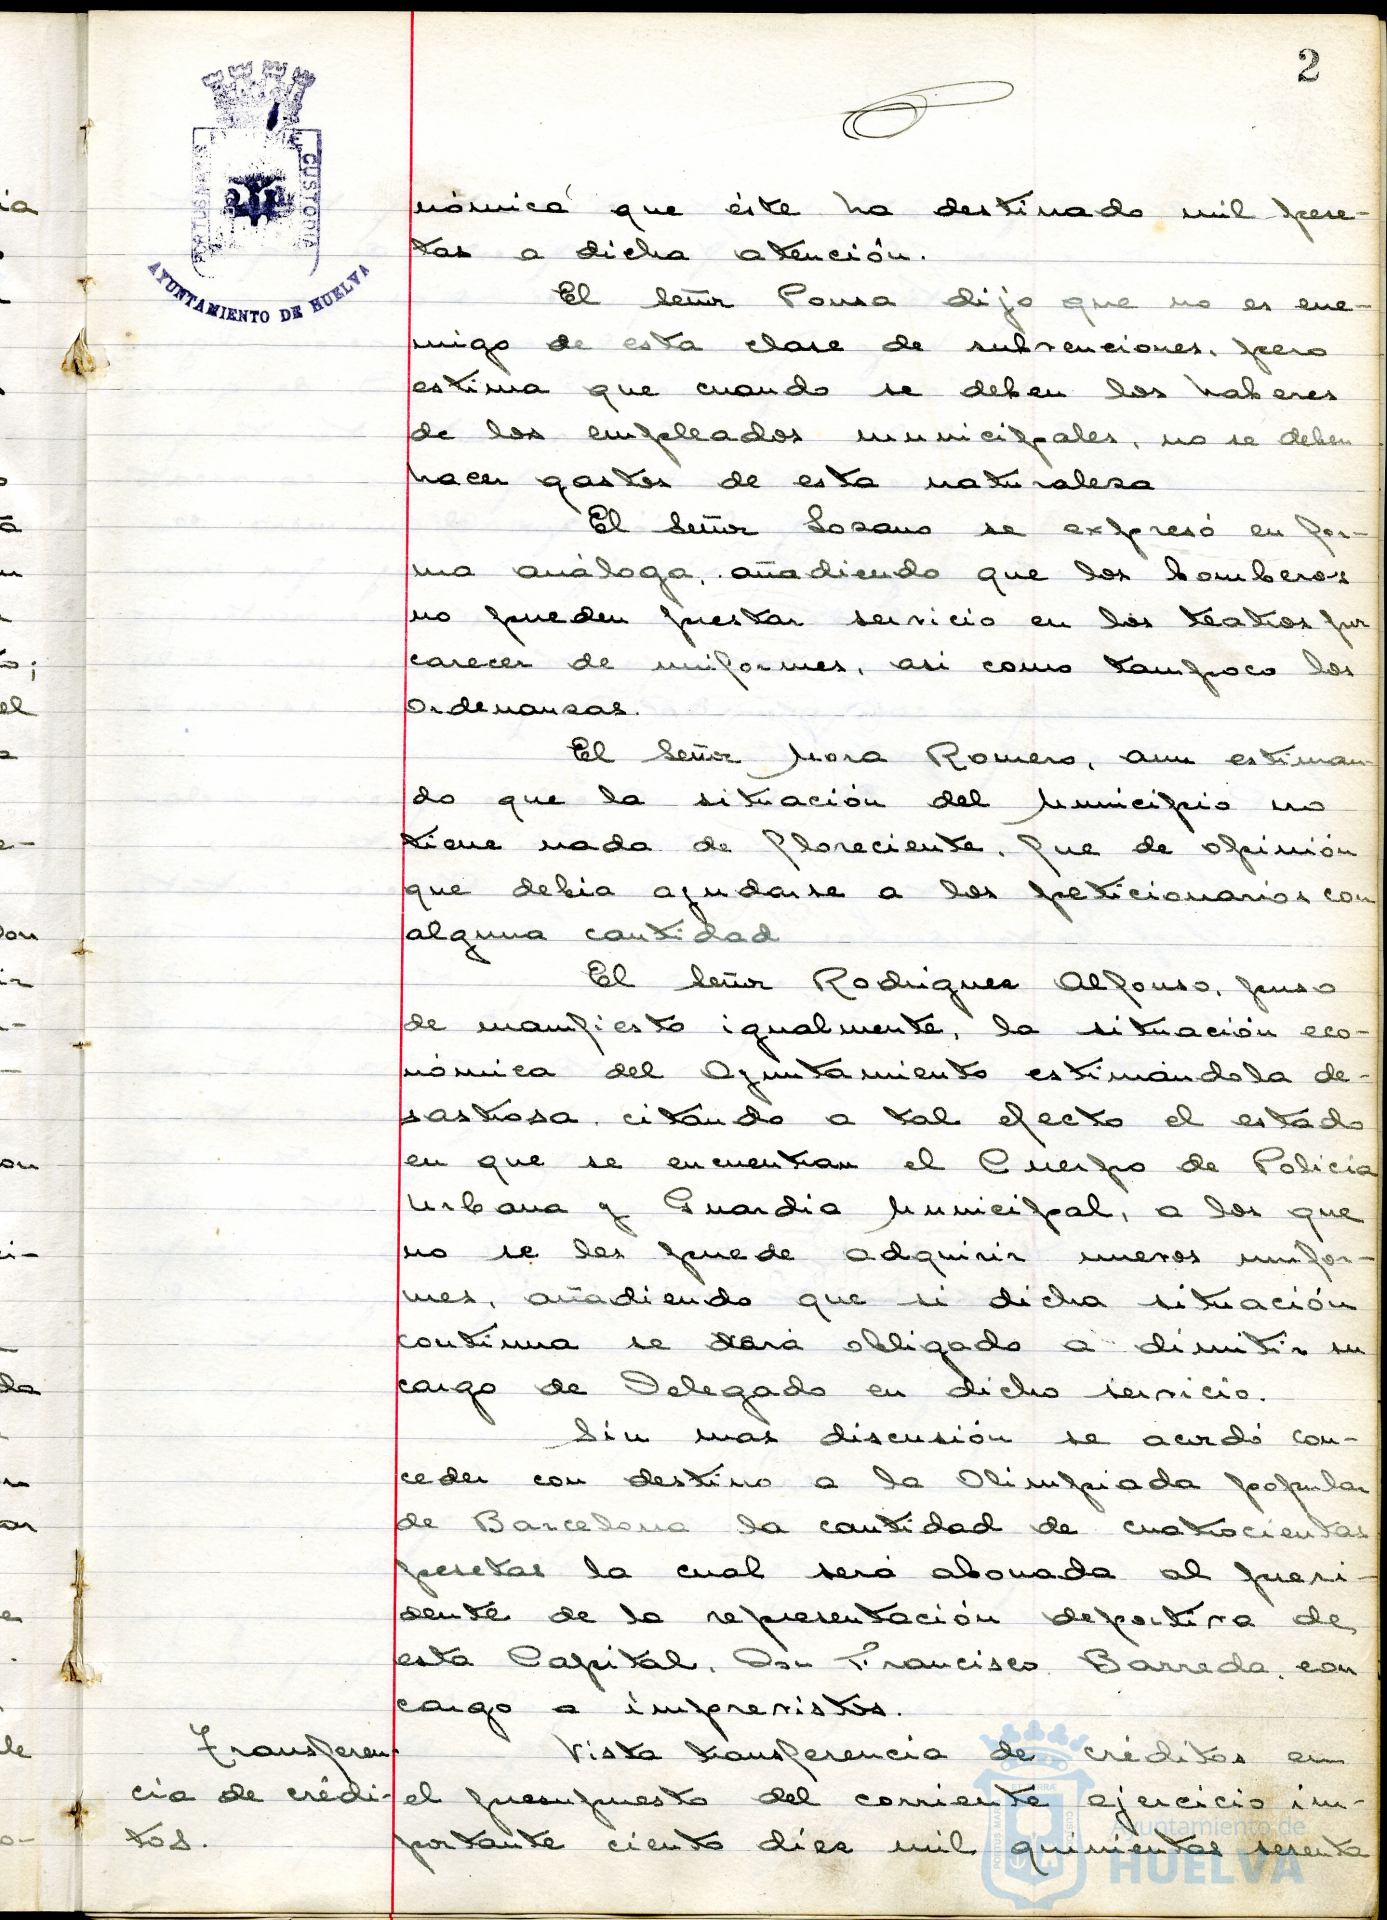 2
PORTUS MARIS
CUSTODIA
AYUNTAMIENTO DE HUELVA
nómica que éste ha destinado mil pese-
tas a dicha atención.
El Señor Ponsa dijo que no es ene-
migo de esta clase de subvenciones, pero
estima que cuando se deben los haberes
de los empleados municipales, no se deben
hacer gastos de esta naturaleza
El Señor Lozano se expresó en for-
ma análoga, añadiendo que los bomberos
no pueden prestar servicio en los teatros por
carecer de uniformes, asi como tampoco los
Ordenanzas.
El Señor Mora Romero, aun estiman-
do que la situación del Municipio no
tiene nada de floreciente, fue de opinión
que debia ayudarse a los peticionarios con
alguna cantidad
El Señor Rodriguez Alfonso, puso
de manifiesto igualmente, la situación eco-
nómica del Ayuntamiento estimándola de-
sastrosa, citando a tal efecto el estado
en que se encuentran el Cuerpo de Policia
Urbana y Guardia Municipal, a los que
no se les puede adquirir nuevos unifor-
mes, añadiendo que si dicha situación
continua se verá obligado a dimitir su
cargo de Delegado en dicho servicio.
Sin mas discusión se acordó con-
ceder con destino a la Olimpiada popular
de Barcelona la cantidad de cuatrocientas
pesetas la cual será abonada al presi-
dente de la representación deportiva de
esta Capital, Don Francisco Barreda, con
cargo a imprevistos.
Transferen-
cia de crédi-
tos.
Vista transferencia de créditos en
el presupuesto del corriente ejercicio im-
portante ciento diez mil quinientas sesenta
Ayuntamiento de
HUELVA